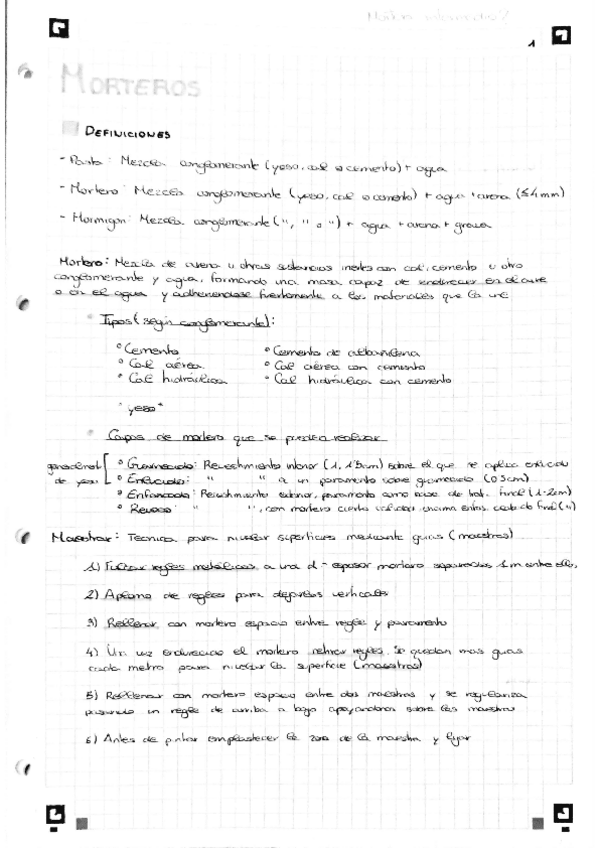 1
MORTEROS
DEFINICIONES
- Pasta: Mezcla conglomerante (yeso, cal o cemento) + agua
- Mortero: Mezcla conglomerante (yeso, cal o cemento) + agua + arena (≤4mm)
- Hormigon: Mezcla conglomerante (", " o ") + agua + arena + grava
Mortero: Mezcla de arena u otras sustancias inertes con cal, cemento u otro
conglomerante y agua, formando una masa capaz de endurecer en el aire
o en el agua y adheriendose fuertemente a los materiales que la une
Tipos (según conglomerante):
° Cemento
° Cal aérea
° Cal hidráulica
° Cemento de albañileria
° Cal aérea con cemento
° Cal hidráulica con cemento
"yeso"
Capas de mortero que se pueden realizar
general
de yeso
° Guarnecido: Revestimiento interior (1, 1'5cm) sobre el que se aplica enlucido
° Enlucido: " " a un paramento sobre guarnecido (0'5cm)
° Enfoscado: Revestimiento exterior, paramento como base de trat. final (1-2cm)
° Revoco: " ", con mortero cierta calidad encima enfos. acabado final (")
Maestrear: Tecnica para nivelar superficies mediante guias (maestras)
1) Fijar regles metálicos a una d - espesor mortero separadas 1m entre ellos.
2) Aplomo de regles para dejarlos verticales
3) Rellenar con mortero espacio entre regles y paramento
4) Un vez endurecido el mortero retirar regles. Se quedan mas guias
cada metro para nivelar la superficie (maestras)
5) Rellenar con mortero espacio entre dos maestras y se regulariza
pasando un regle de arriba a bajo apoyandonos sobre las maestras
6) Antes de pintar emplastecer la zona de la maestra y lijar